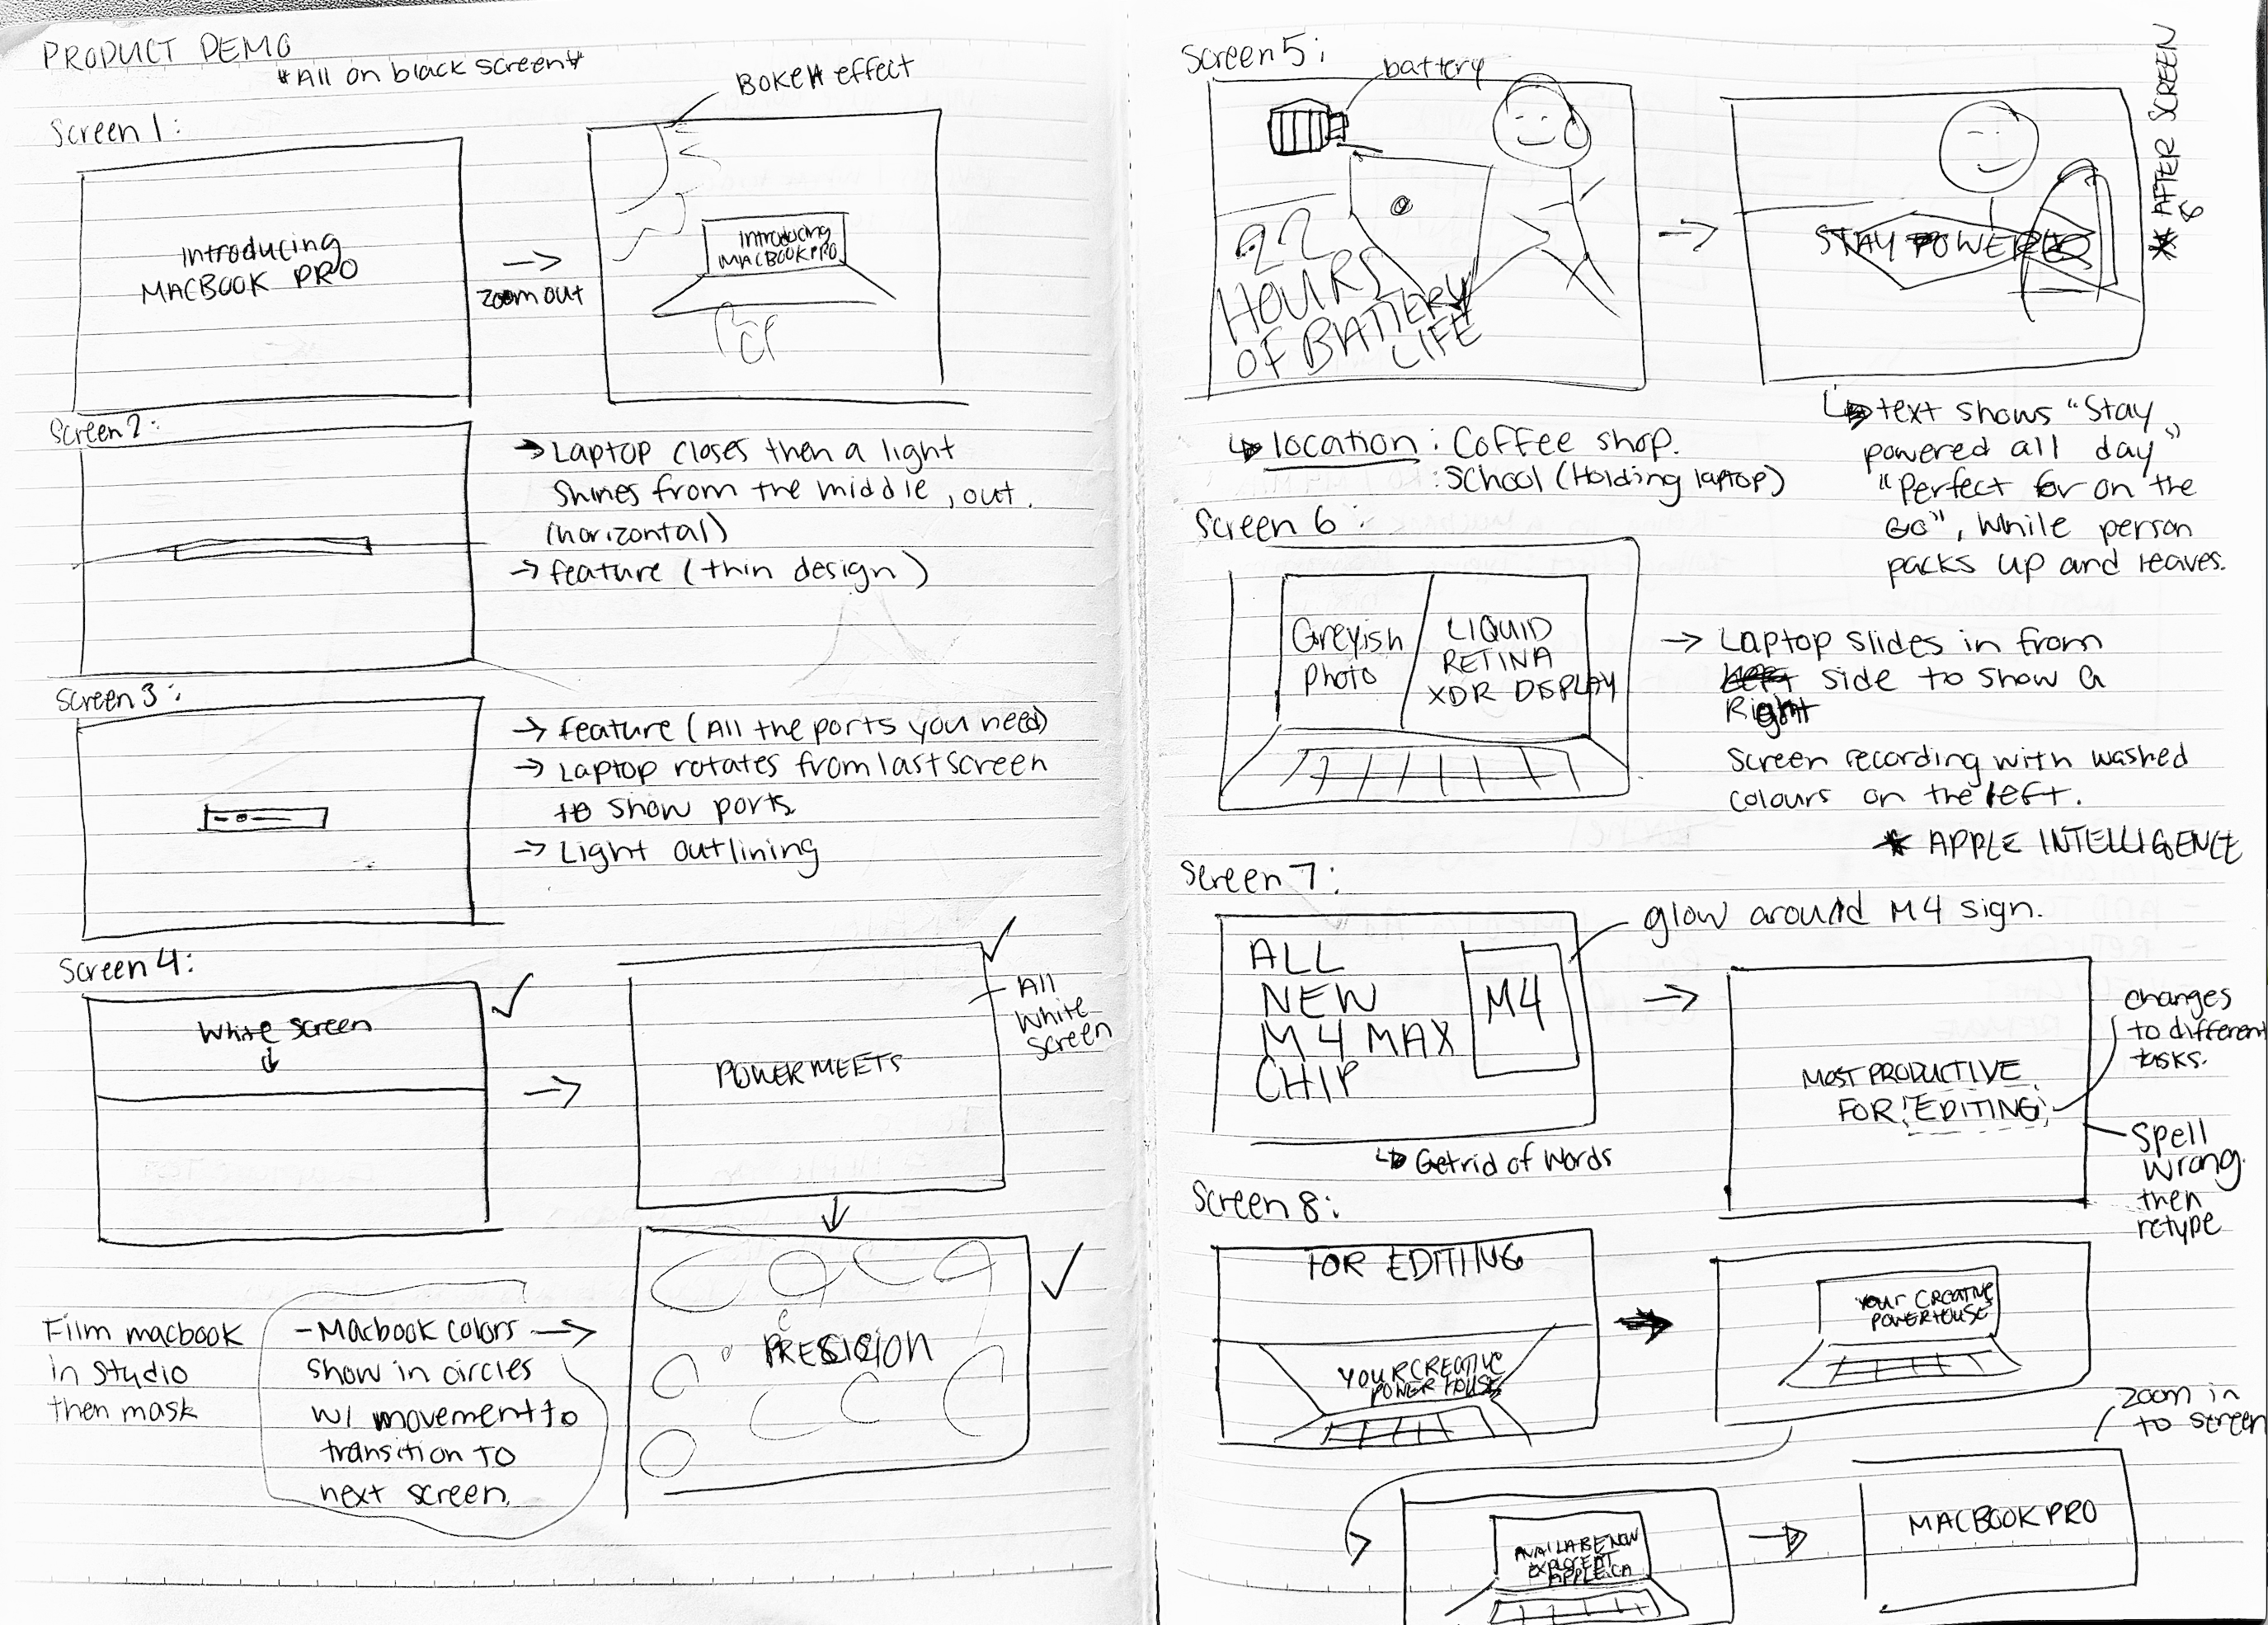 PRODUCT DEMO
*All on black screen*
Screen 1:
Introducing
MACBOOK PRO
zoom out
BOKEH effect
Introducing
MACBOOK PRO
Screen 2:
→ Laptop closes then a light
shines from the middle, out.
(horizontal)
→ feature (thin design)
Screen 3:
→ feature (All the ports you need)
→ Laptop rotates from last screen
to show ports
→ Light outlining
Screen 4:
White screen
POWER MEETS
All
White
screen
PRECISION
Film macbook
in studio
then mask
- Macbook colors →
show in circles
w/ movement to
transition to
next screen.
Screen 5:
battery
22
HOURS
OF BATTERY
LIFE
STAY POWERED
* AFTER SCREEN
6
↳ location: Coffee shop.
: School (Holding laptop)
↳ text shows "Stay
powered all day"
"Perfect for on the
GO", while person
packs up and leaves.
Screen 6:
Greyish
Photo
LIQUID
RETINA
XDR DISPLAY
→ Laptop slides in from
Left side to show a
Right
Screen recording with washed
colours on the left.
* APPLE INTELLIGENCE
Screen 7:
ALL
NEW
M4 MAX
CHIP
M4
glow around M4 sign.
↳ Get rid of words
MOST PRODUCTIVE
FOR 'EDITING'
changes
to different
tasks.
Spell
wrong.
then
retype
Screen 8:
FOR EDITING
YOUR CREATIVE
POWER HOUSE
YOUR CREATIVE
POWERHOUSE
AVAILABE NOW
EXPLORE AT
APPLE.CA
zoom in
to screen
MACBOOK PRO